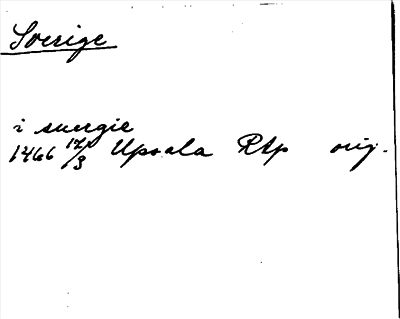 Sverige
i suergie
1466 17/3 Upsala Rtp orig.